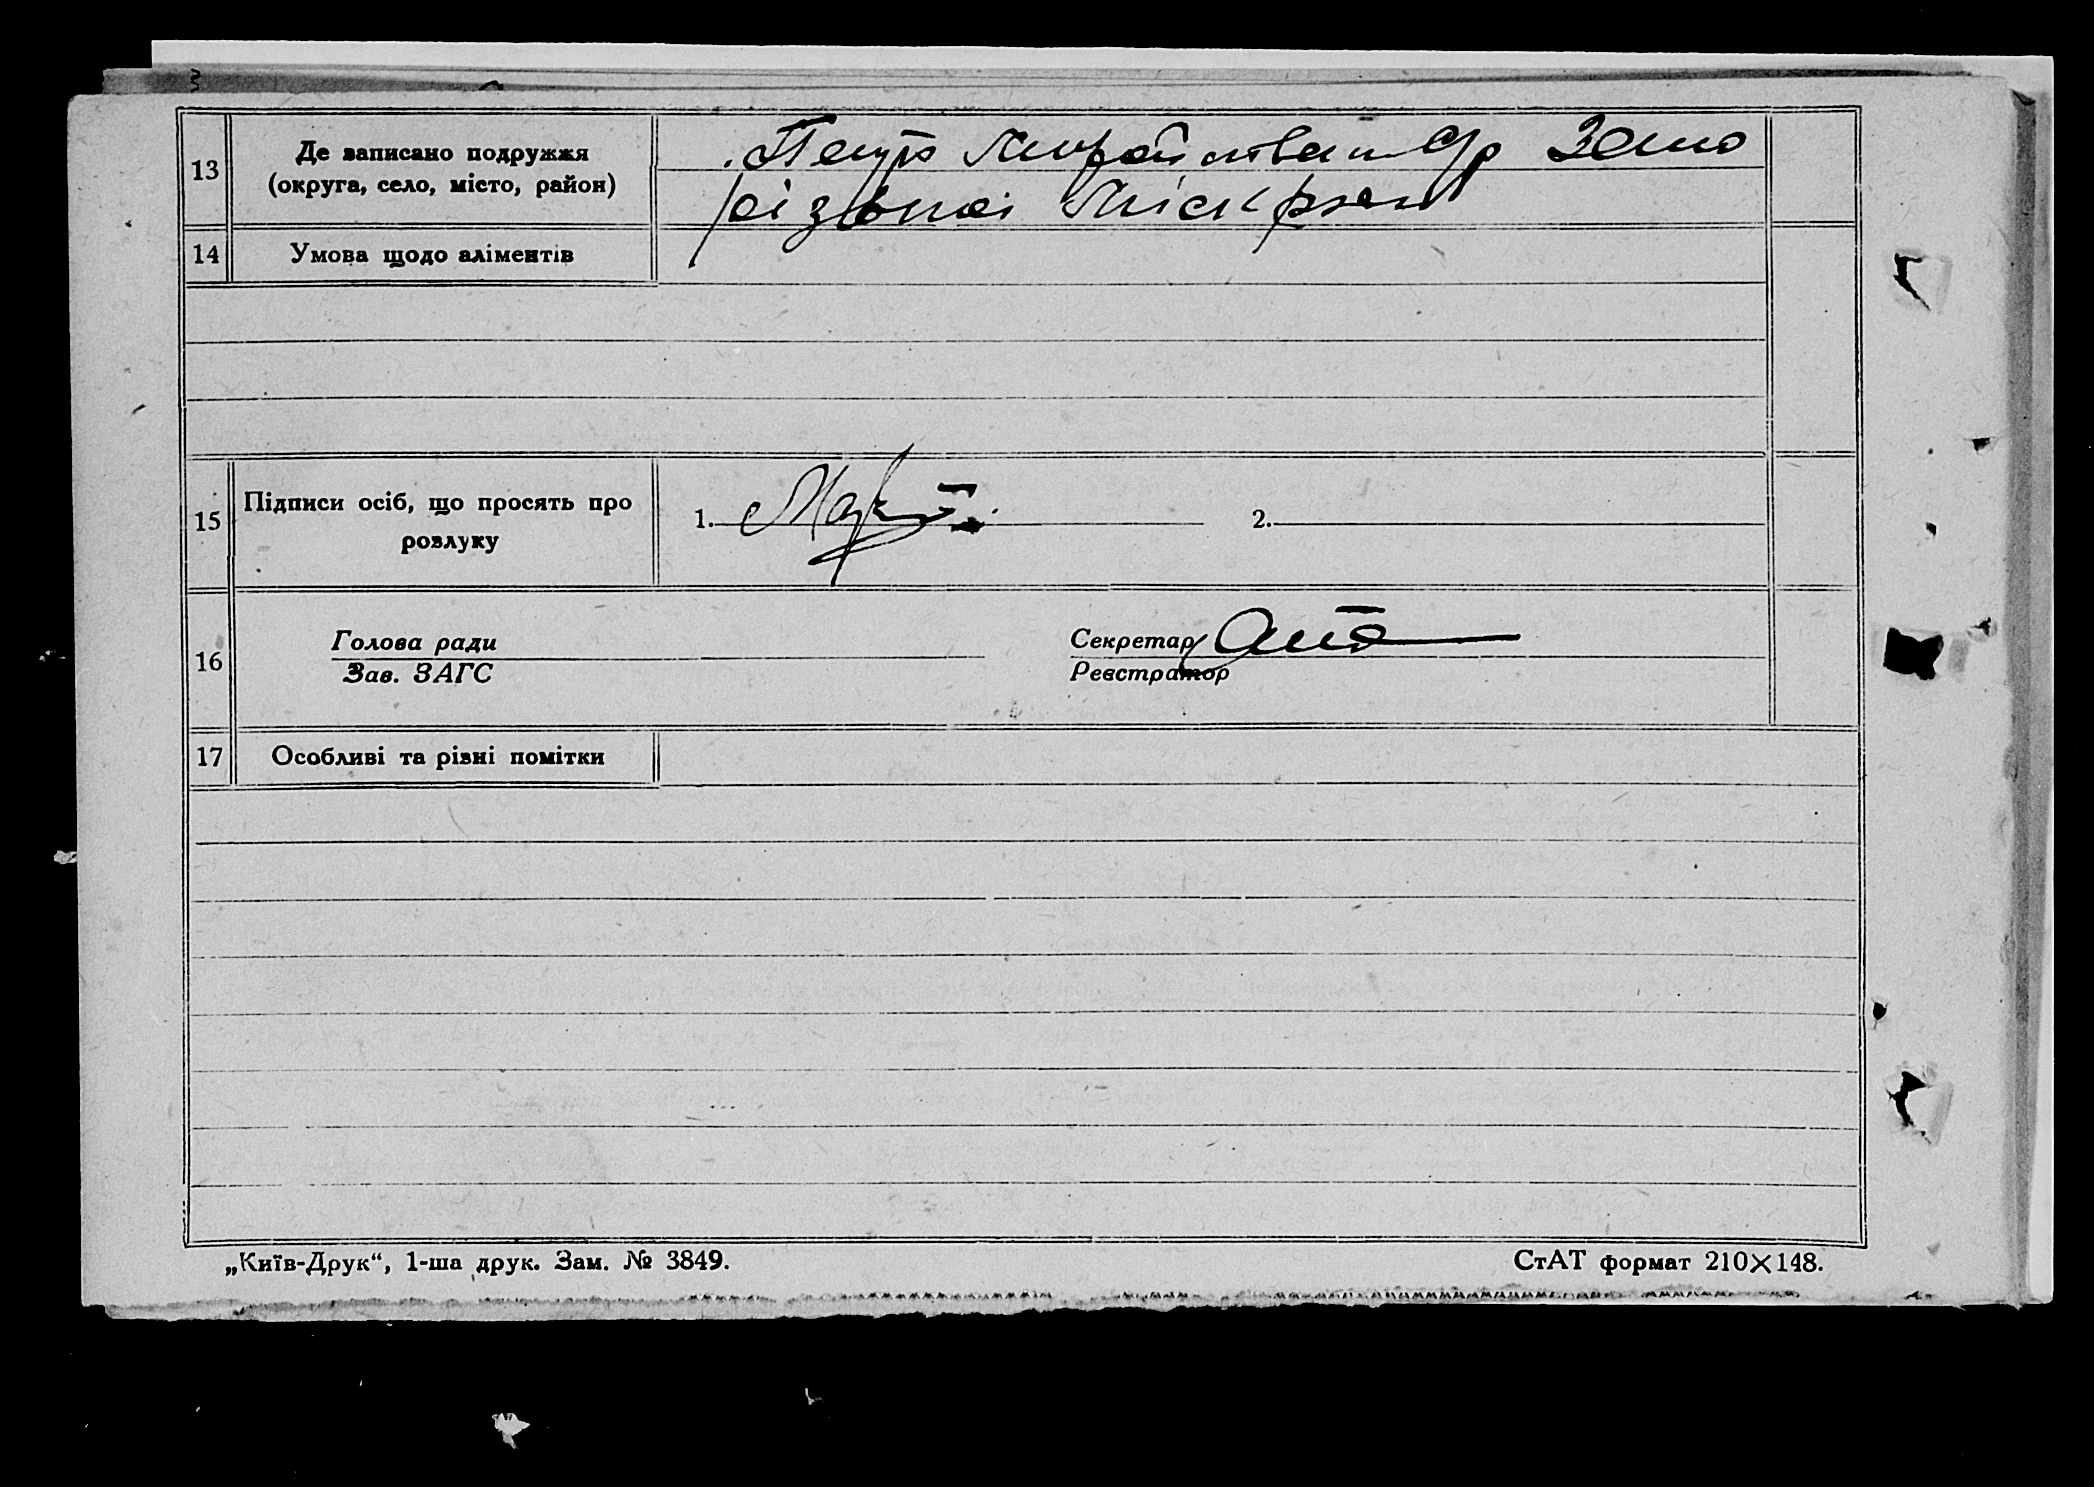 13 Де записано подружжя
(округа, село, місто, район)
14 Умова щодо аліментів
15 Підписи осіб, що просять про
розлуку
1. 2.
16 Голова ради Секретар
Зав. ЗАГС Реєстратор
17 Особливі та різні помітки
„Київ-Друк“, 1-ша друк. Зам. № 3849. СтАТ формат 210×148.